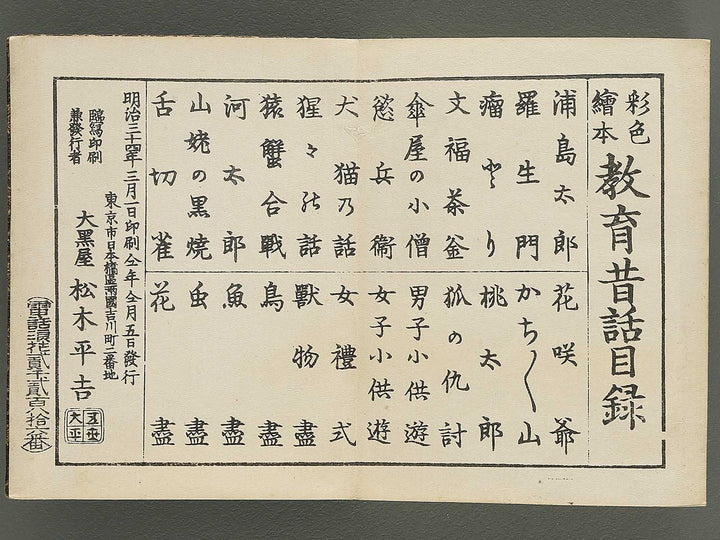 彩色
繪本
教育昔話目録
浦島太郎
羅生門
瘤とり
文福茶釜
傘屋の小僧
慾兵衞
犬猫乃話
猩々の話
猿蟹合戰
河太郎
山姥の黒燒
舌切雀
花咲爺
かち〳〵山
桃太郎
狐の仇討
男子小供遊
女子小供遊
女禮式
獸物盡
鳥盡
魚盡
虫盡
花盡
明治三十四年三月一日印刷仝年仝月五日發行
臨寫印刷
兼發行者
東京市日本橋區兩國吉川町二番地
大黒屋 松木平吉
大平
(電話浪花貳千貳百八拾六番)